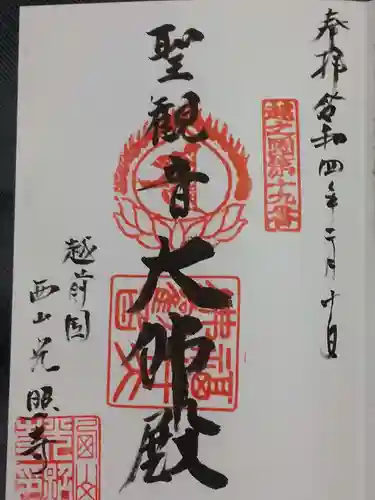 奉拝 令和四年二月十日
越之国第十九番
聖観音大佛殿
越前国
西山光照寺